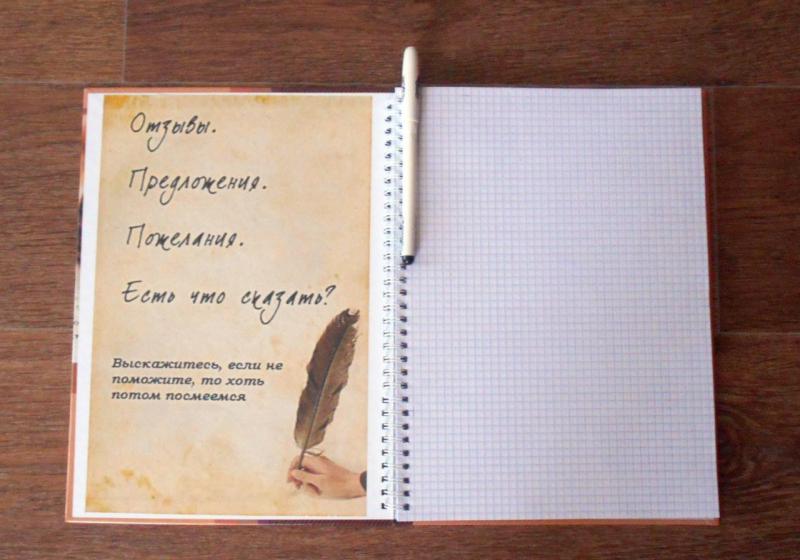 Отзывы.
Предложения.
Пожелания.
Есть что сказать?
Выскажитесь, если не
поможите, то хоть
потом посмеемся